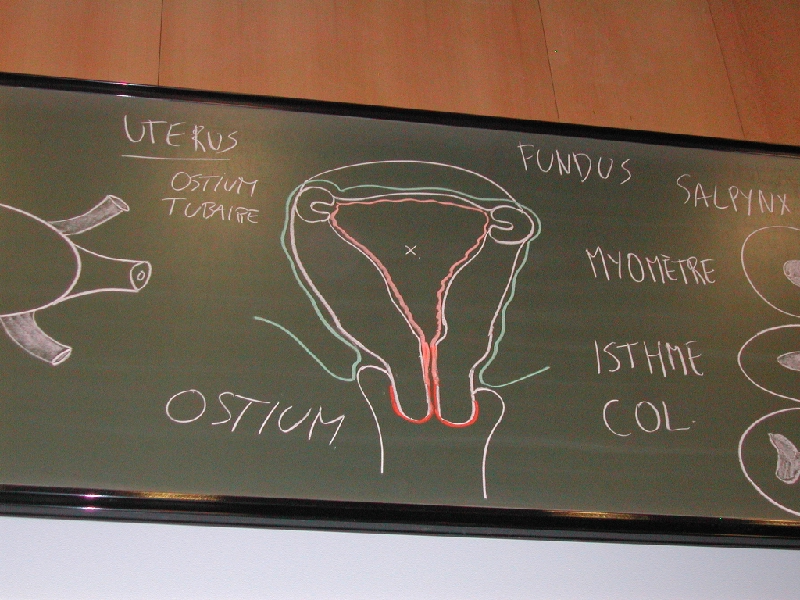 UTERUS
OSTIUM
TUBAIRE
FUNDUS
SALPYNX
MYOMÈTRE
ISTHME
COL.
OSTIUM
X